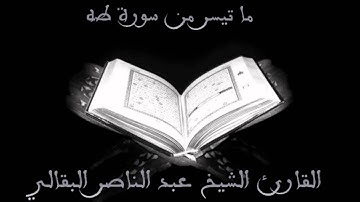 ما تيسر من سورة طه
القارئ الشيخ عبد الناصر البقالي